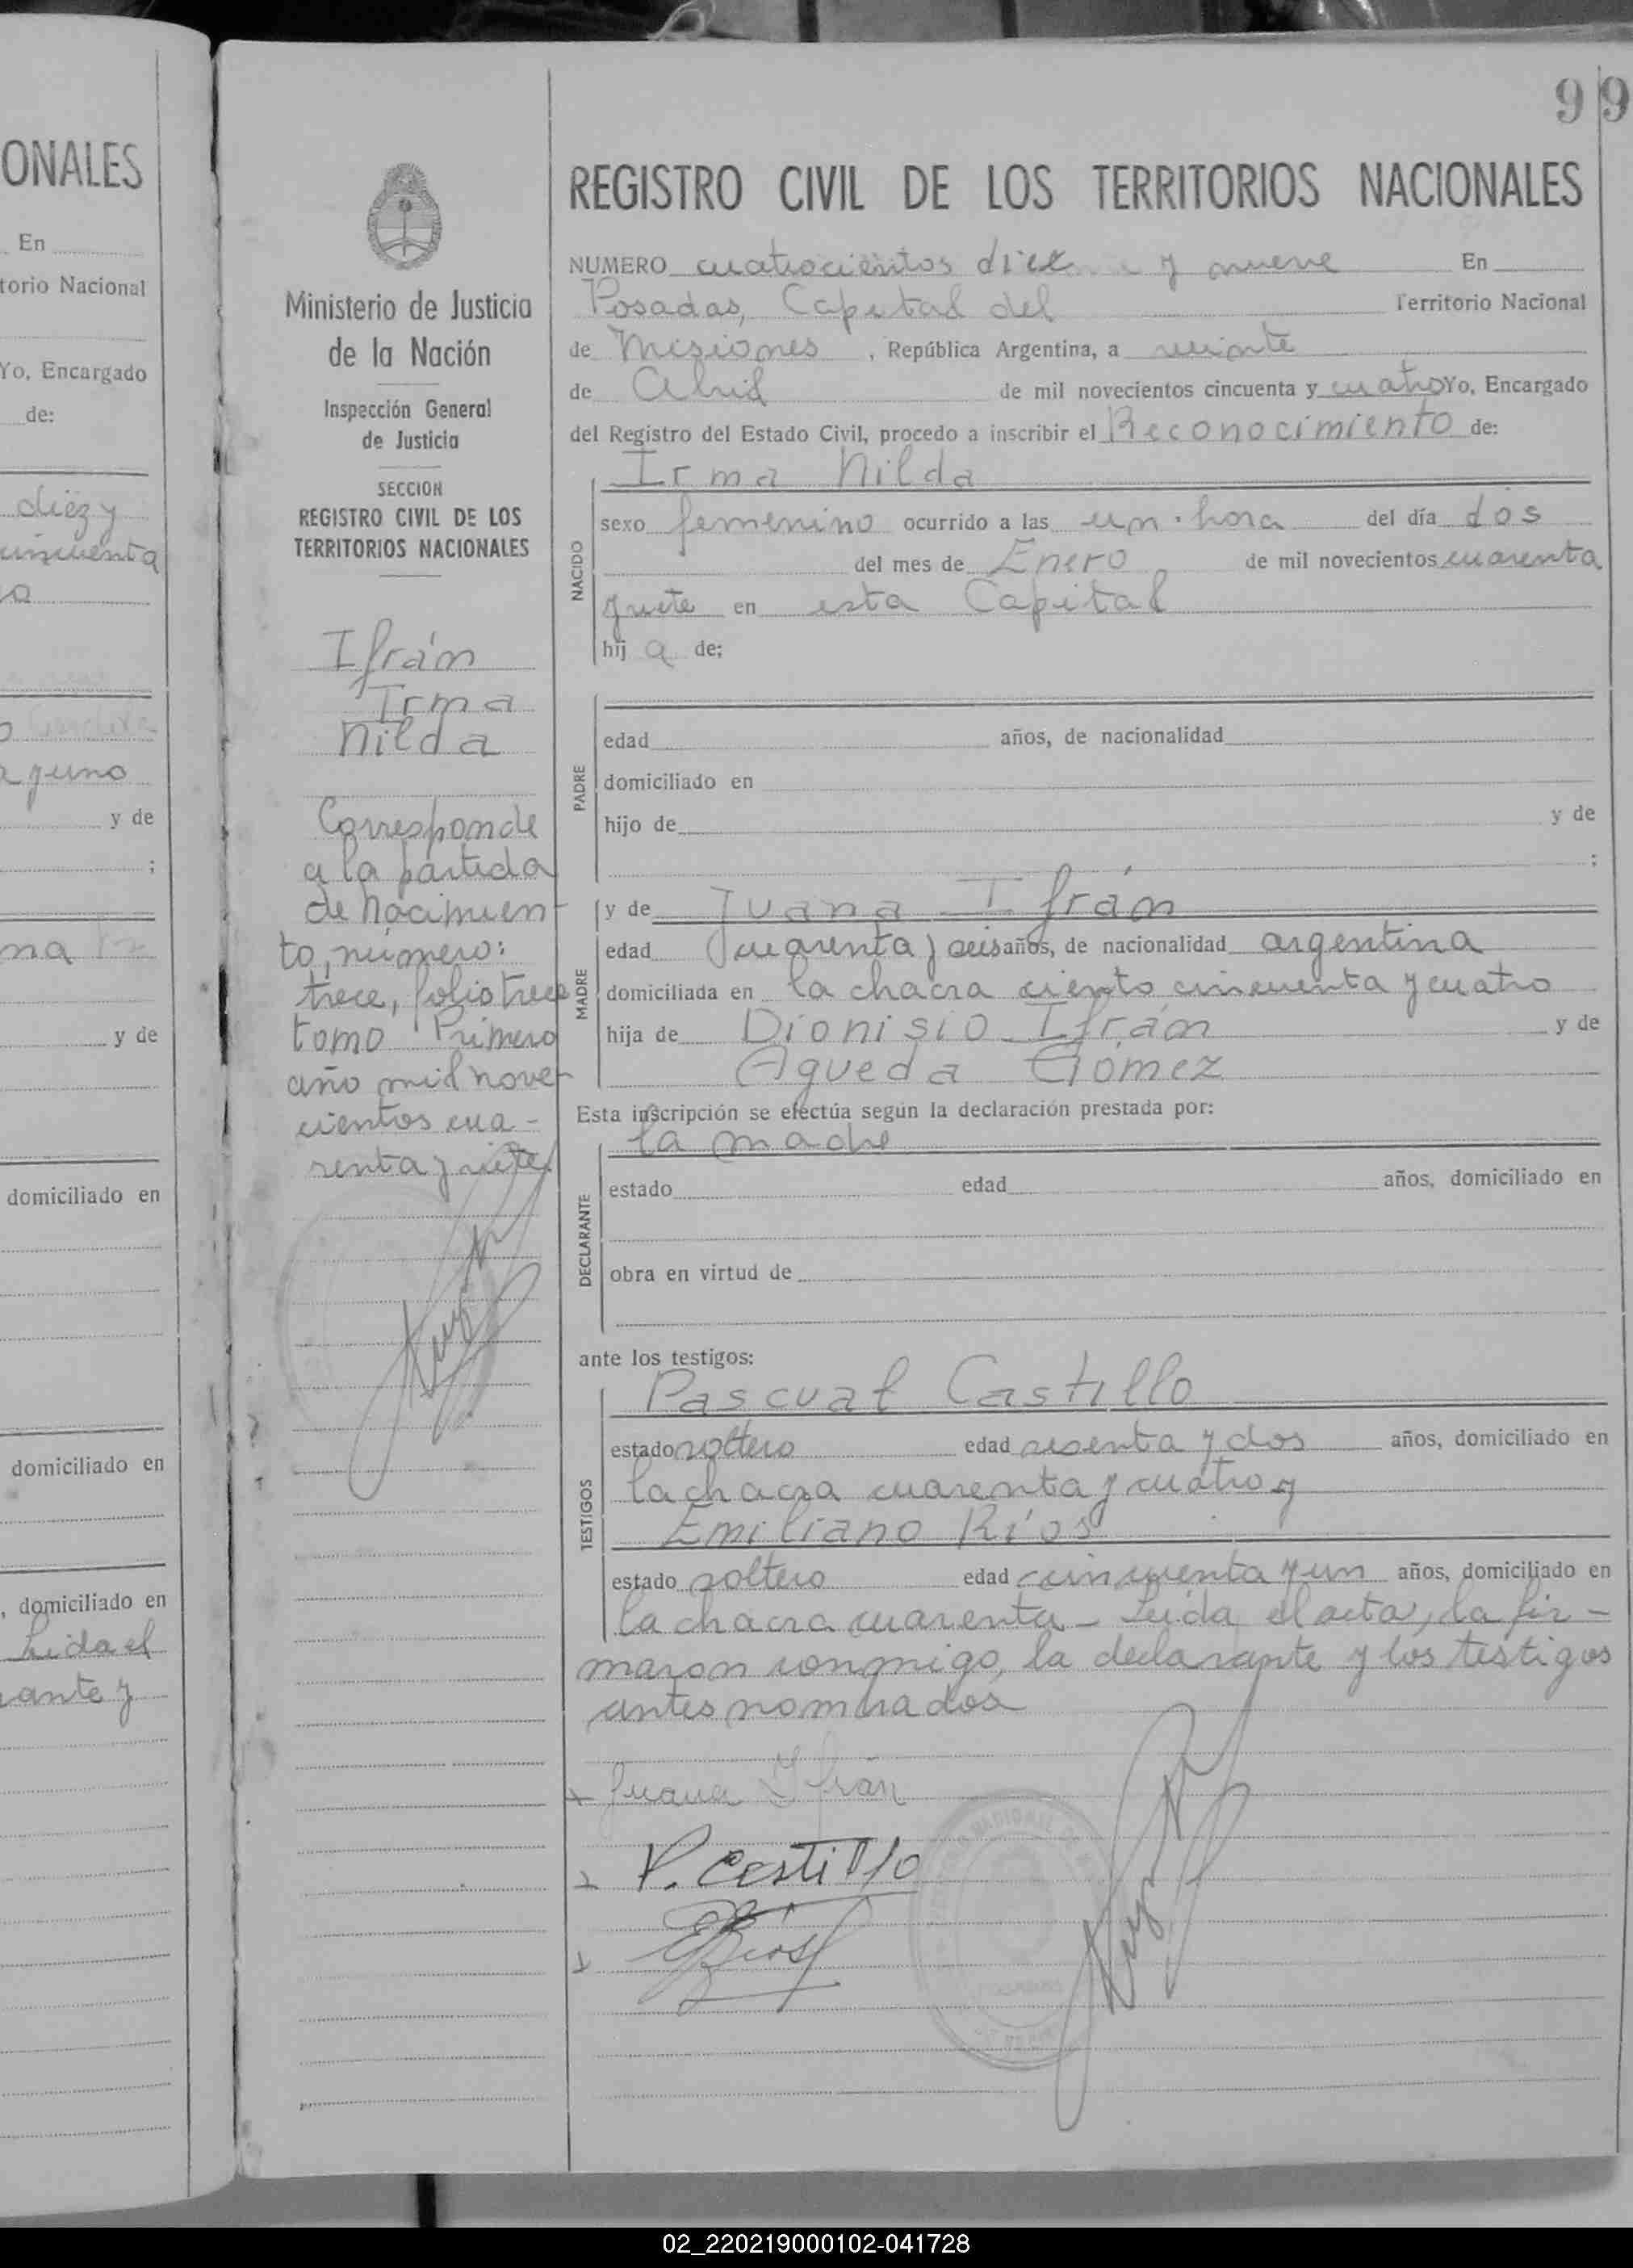 ONALES
En
torio Nacional
Yo, Encargado
de:
diez y
cincuenta
a y uno
y de
;
na
y de
domiciliado en
domiciliado en
, domiciliado en
Leida el
rante y
99
Ministerio de Justicia
de la Nación
Inspección General
de Justicia
SECCION
REGISTRO CIVIL DE LOS
TERRITORIOS NACIONALES
Ifrán
Irma
Nilda
Corresponde
a la partida
de Nacimien-
to, número:
trece, folio trece
tomo Primero
año mil nove-
cientos cua-
renta y siete.
REGISTRO CIVIL DE LOS TERRITORIOS NACIONALES
NUMERO cuatrocientos diez y nueve En
Posadas, Capital del Territorio Nacional
de Misiones , República Argentina, a veinte
de Abril de mil novecientos cincuenta y cuatro Yo, Encargado
del Registro del Estado Civil, procedo a inscribir el Reconocimiento de:
Irma Nilda
NACIDO
sexo femenino ocurrido a las un hora del día dos
del mes de Enero de mil novecientos cuarenta
y siete en esta Capital
hij a de;
PADRE
edad años, de nacionalidad
domiciliado en
hijo de y de
;
MADRE
y de Juana Ifrán
edad cuarenta y seis años, de nacionalidad argentina
domiciliada en la chacra ciento cincuenta y cuatro
hija de Dionisio Ifrán y de
Agueda Gómez
Esta inscripción se efectúa según la declaración prestada por:
la madre
DECLARANTE
estado edad años, domiciliado en
obra en virtud de
ante los testigos:
Pascual Castillo
TESTIGOS
estado soltero edad sesenta y dos años, domiciliado en
la chacra cuarenta y cuatro y
Emiliano Ríos
estado soltero edad cincuenta y un años, domiciliado en
la chacra cuarenta - Leida el acta, la fir-
maron conmigo, la declarante y los testigos
antes nombrados
Juana Ifrán
P. Castillo
ERios
02_220219000102-041728